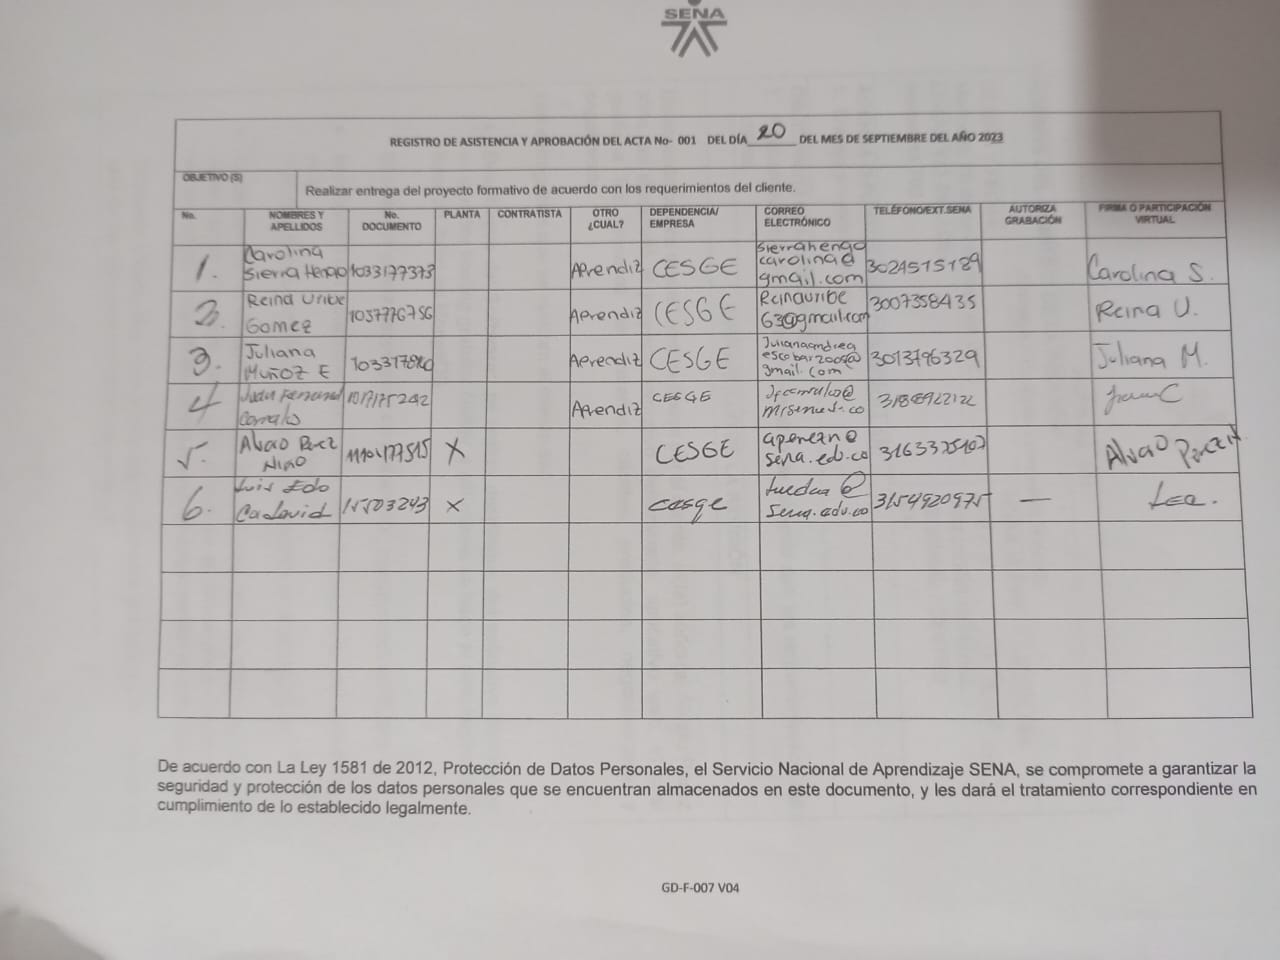 SENA
REGISTRO DE ASISTENCIA Y APROBACIÓN DEL ACTA No- 001 DEL DÍA 20 DEL MES DE SEPTIEMBRE DEL AÑO 2023
OBJETIVO (S)
Realizar entrega del proyecto formativo de acuerdo con los requerimientos del cliente.
No. NOMBRES Y APELLIDOS No. DOCUMENTO PLANTA CONTRATISTA OTRO ¿CUAL? DEPENDENCIA/ EMPRESA CORREO ELECTRÓNICO TELÉFONO/EXT.SENA AUTORIZA GRABACIÓN FIRMA O PARTICIPACIÓN VIRTUAL
1. Carolina Sierra Henao 1033177373 Aprendiz CESGE sierrahenao carolina@ gmail.com 3024515189 Carolina S.
2. Reina Uribe Gomez 1037776756 Aprendiz CESGE Reinauribe 63@gmail.com 3007358435 Reina U.
3. Juliana MUÑOZ E Aprendiz CESGE Julianaandrea escobar2005@ gmail.com 3013796329 Juliana M.
4 Corrales Aprendiz CESGE
5. Alvaro Perez Niño X CESGE aperezn@ sena.edu.co Alvaro Perez N
6. Luis Edo Cadavid 15503243 X cesge @ sena.edu.co 3154920975 — Lec.
De acuerdo con La Ley 1581 de 2012, Protección de Datos Personales, el Servicio Nacional de Aprendizaje SENA, se compromete a garantizar la
seguridad y protección de los datos personales que se encuentran almacenados en este documento, y les dará el tratamiento correspondiente en
cumplimiento de lo establecido legalmente.
GD-F-007 V04